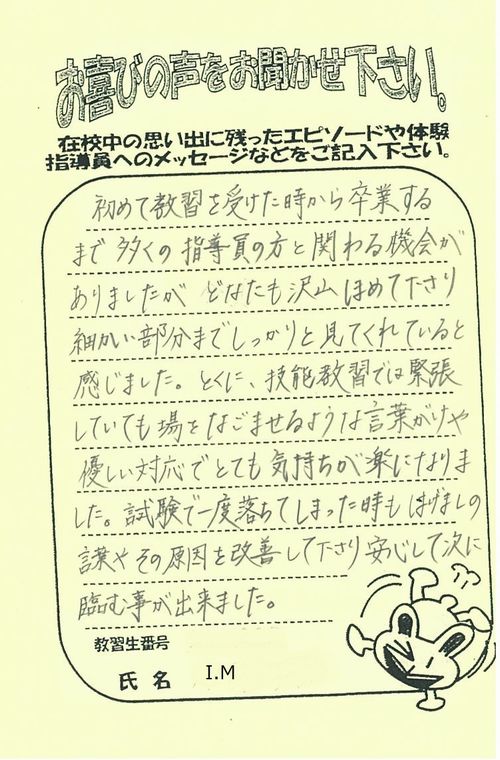 お喜びの声をお聞かせ下さい。
在校中の思い出に残ったエピソードや体験
指導員へのメッセージなどをご記入下さい。
初めて教習を受けた時から卒業する
まで多くの指導員の方と関わる機会が
ありましたが どなたも沢山ほめて下さり
細かい部分までしっかりと見てくれていると
感じました。とくに、技能教習では緊張
していても場をなごませるような言葉がけや
優しい対応でとても気持ちが楽になりま
した。試験で一度落ちてしまった時もはげましの
言葉やその原因を改善して下さり安心して次に
臨む事が出来ました。
教習生番号
氏名 I.M